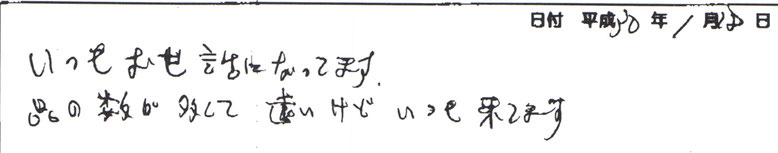 日付 平成30年1月 日
いつもお世話になってます.
品の数が多くて 遠いけど いつも来てます